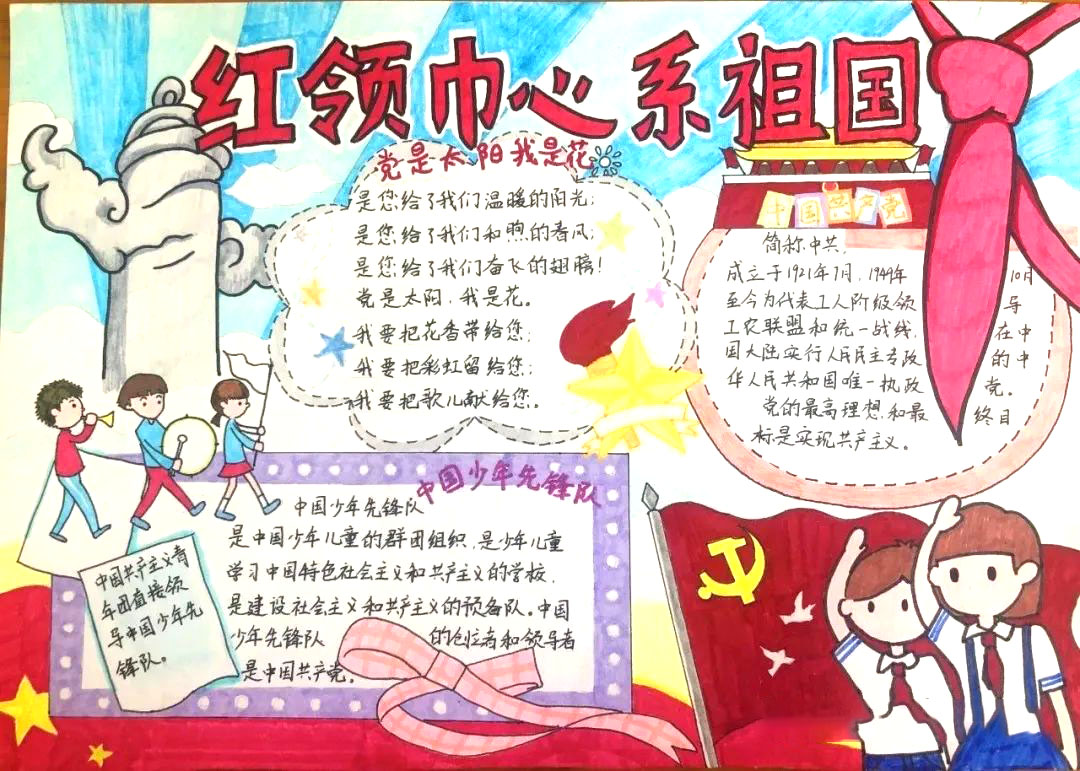 红领巾心系祖国
党是太阳我是花
是您给了我们温暖的阳光；
是您给了我们和煦的春风；
是您给了我们奋飞的翅膀！
党是太阳，我是花。
我要把花香带给您；
我要把彩虹留给您；
我要把歌儿献给您。
中国共产党
简称中共，
成立于1921年7月，1949年10月
至今为代表工人阶级领导
工农联盟和统一战线，在中
国大陆实行人民民主专政的中
华人民共和国唯一执政党。
党的最高理想和最终目
标是实现共产主义。
中国少年先锋队
中国少年先锋队
是中国少年儿童的群团组织，是少年儿童
学习中国特色社会主义和共产主义的学校，
是建设社会主义和共产主义的预备队。中国
少年先锋队的创立者和领导者
是中国共产党。
中国共产主义青
年团直接领
导中国少年先
锋队。